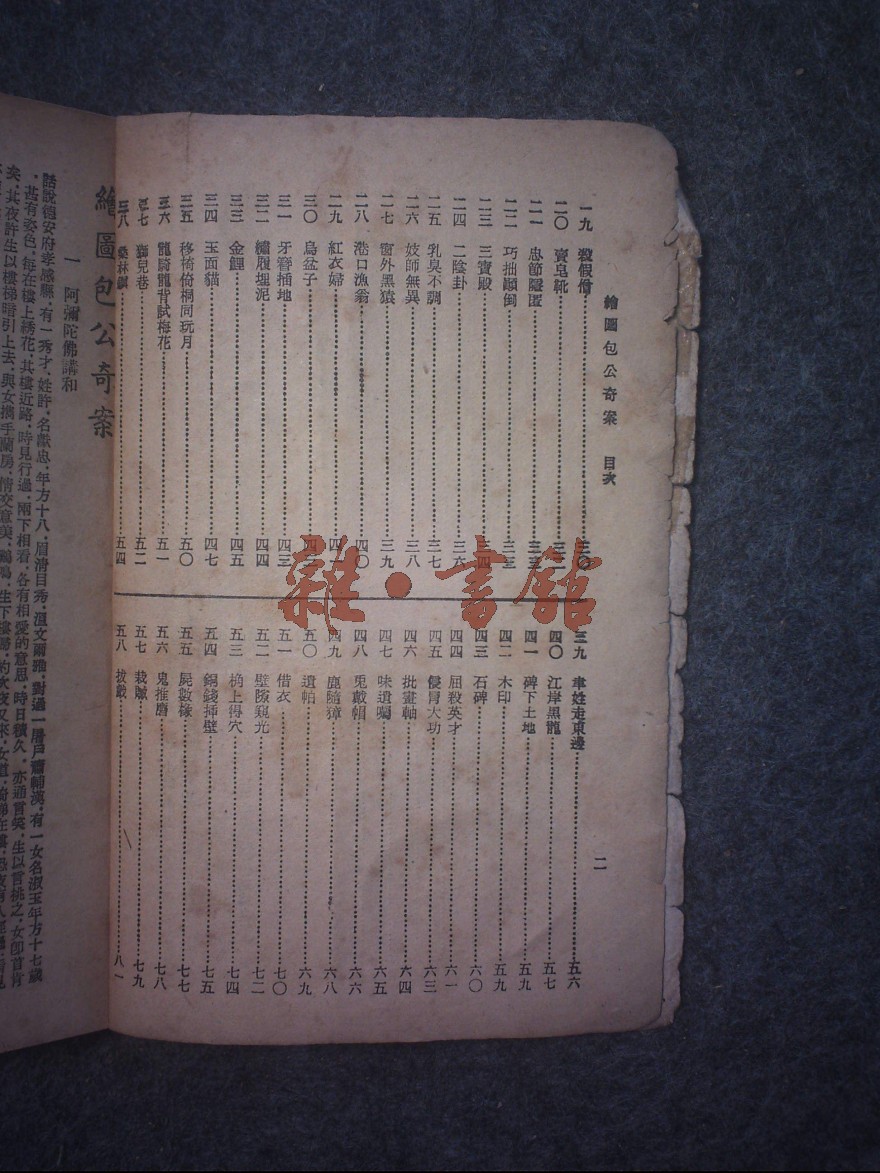 繪圖包公奇案 目次
二
一九 殺假僧 三〇
二〇 賣皂靴
二一 忠節隱匿
二二 巧拙顛倒
二三 三寶殿
二四 二陰卦 三六
二五 乳臭不調 三七
二六 妓師無異 三八
二七 窗外黑猿 三九
二八 港口漁翁 四〇
二九 紅衣婦
三〇 烏盆子
三一 牙簪插地 四三
三二 繡履埋泥 四四
三三 金鯉 四五
三四 玉面貓 四七
三五 移椅倚桐同玩月 五〇
三六 龍騎龍背試梅花 五一
三七 獅兒巷 五二
三八 桑林鎮 五四
三九 聿姓走東邊 五六
四〇 江岸黑龍 五七
四一 碑下土地 五九
四二 木印 五九
四三 石碑 六〇
四四 屈殺英才 六一
四五 侵冒大功 六三
四六 批畫軸 六四
四七 味遺囑 六五
四八 兎戴帽 六六
四九 鹿隨獐 六八
五〇 遺帕 六九
五一 借衣 七〇
五二 壁隙窺光 七二
五三 桷上得穴 七四
五四 銅錢插壁 七五
五五 屍數椽 七七
五六 鬼推磨 七八
五七 栽贓 七九
五八 扳戲 八一
雜·書館
繪圖包公奇案
一 阿彌陀佛講和
話說德安府孝感縣，有一秀才，姓許，名獻忠，年方十八，眉清目秀，溫文爾雅，對過一屠戶蕭輔漢，有一女名淑玉年方十七歲
，甚有姿色，每在樓上綉花，其樓近路，時見行過，兩下相看，各有相愛的意思，時日積久，亦通言笑，生以言挑之，女卽首肯
矣，其夜許生以樓梯暗引上去，與女攜手蘭房，情交意美，鷄鳴，生下樓歸，約次夜又來，女道